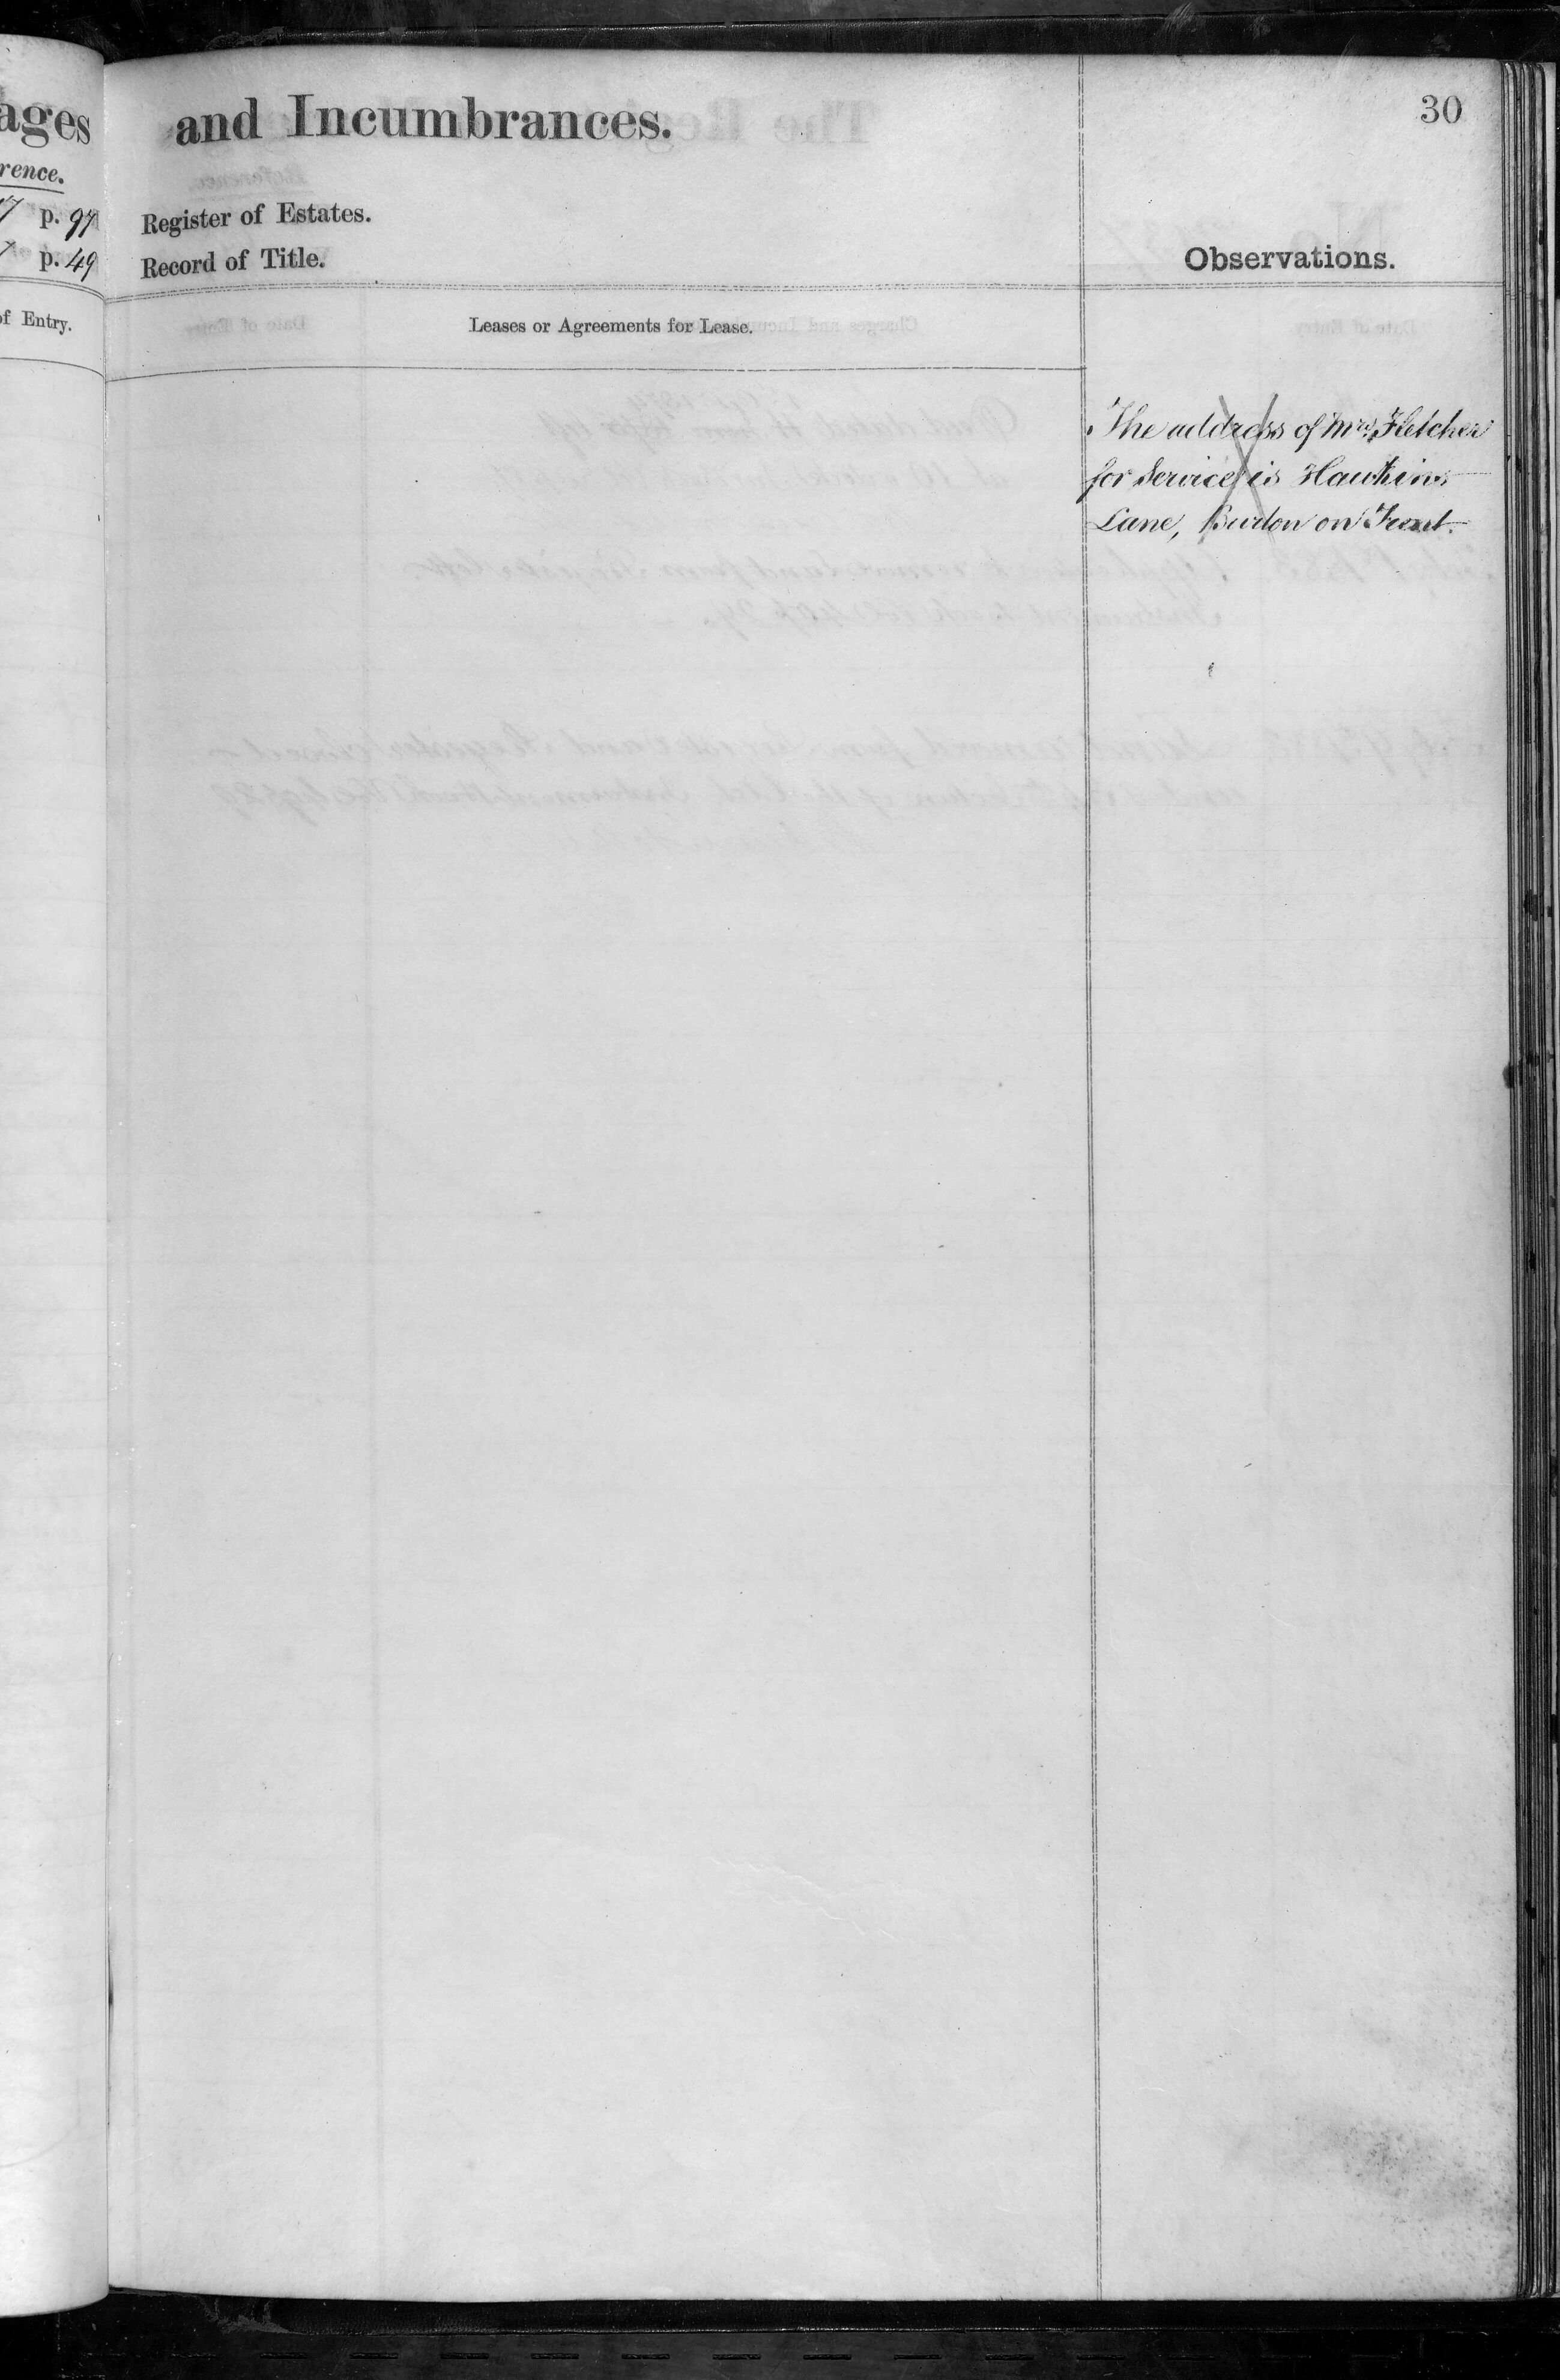 ages
rence.
p. 97
p. 49
of Entry.
and Incumbrances.
30
Register of Estates.
Record of Title.
Observations.
Leases or Agreements for Lease.
The address of Mrs Fletcher
for Service is Hawkins
Lane, Burton on Trent.